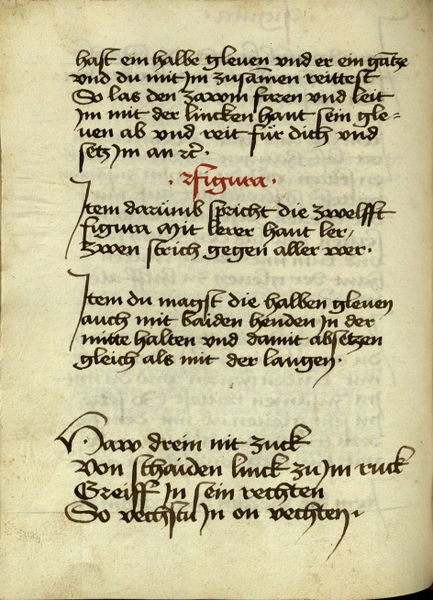 hast ein halbe gleuen vnd er ein gãtze
vnd du mit jm zusamen reittest
So las den zawm faren vnd leit
jm mit der lincken hant sein gle-
uen ab vnd reit für dich vnd
setz jm an rc̃ ·
· Figura ·
Item darumb spricht die zwelfft
figura Mit lerer hant ler,
zwen strich gegen aller wer ·
Item du magst die halben gleuen
auch mit baiden henden jn der
mitte halten vnd damit absetzen
gleich als mit der langen ·
Haw drein nit zuck
Von schaiden linck zu jm ruck
Greiff jn sein rechten
So vechstu jn on vechten ·